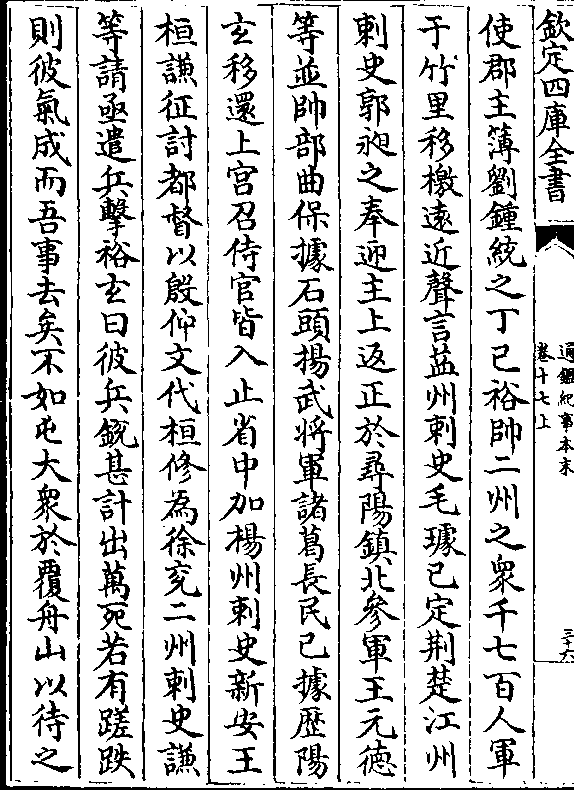 欽定四庫全書
通鑑紀事本末
卷十七上
三十六
使郡主簿劉鍾統之丁已裕帥二州之衆千七百人軍
于竹里移檄遠近聲言益州刺史毛璩已定荆楚江州
刺史郭昶之奉迎主上返正於尋陽鎮北參軍王元德
等並帥部曲保據石頭揚武將軍諸葛長民已據歴陽
玄移還上宫召侍官皆入止省中加楊州刺史新安王
桓謙征討都督以殷仰文代桓修為徐兖二州刺史謙
等請亟遣兵擊裕玄曰彼兵鋭甚計出萬死若有蹉跌
則彼氣成而吾事去矣不如屯大衆於覆舟山以待之